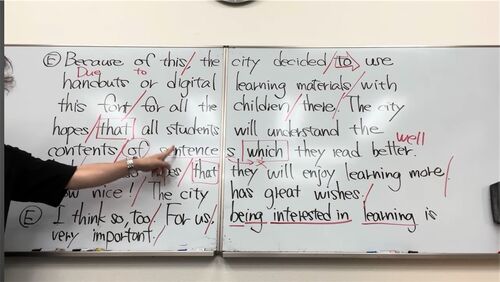 Ⓔ Because of this, the city decided to use
Due to
handouts or digital learning materials with
this font for all the children there. The city
hopes that all students will understand the
well
contents of sentences which they read better.
that they will enjoy learning more
now nice! The city has great wishes.
Ⓔ I think so, too. For us, being interested in learning is
very important.